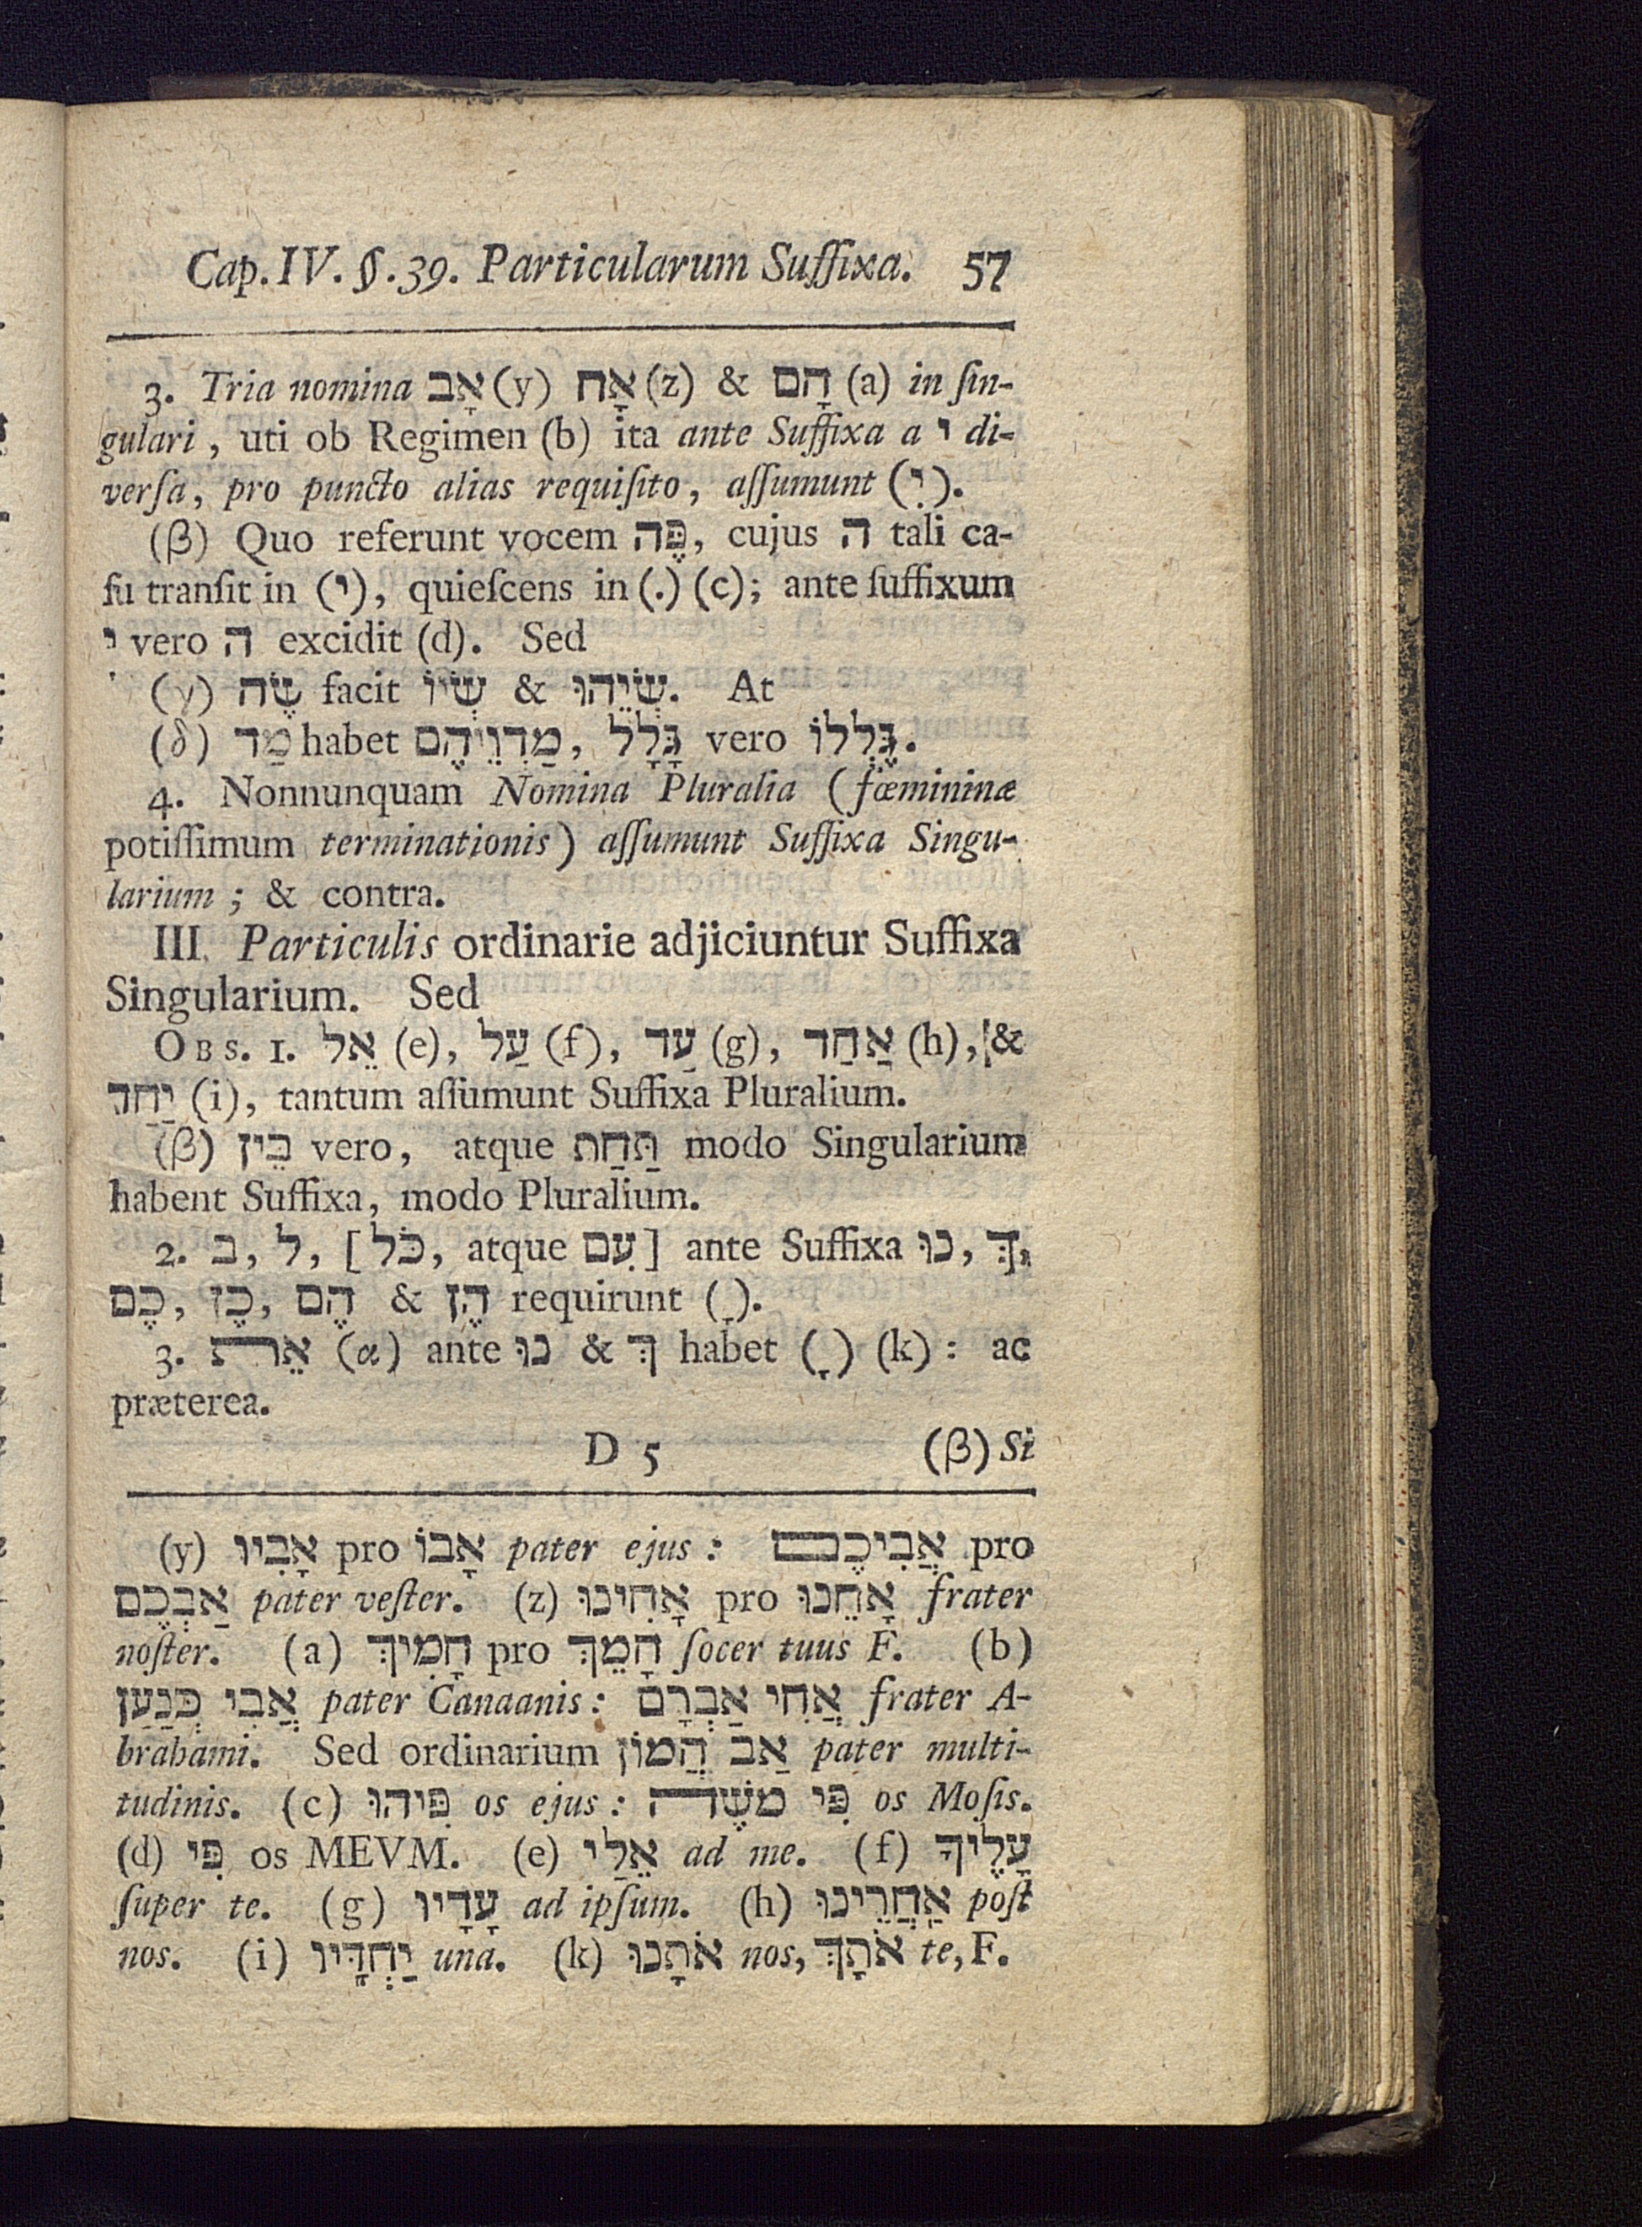 Cap. IV. §. 39. Particularum Suffixa. 57
3. Tria nomina אָב (y) אָח (z) & הָם (a) in ſin-
gulari, uti ob Regimen (b) ita ante Suffixa a י di-
verſa, pro puncto alias requiſito, aſſumunt (יִ).
(β) Quo referunt vocem פֶּה, cujus ה tali ca-
ſu tranſit in (י), quieſcens in (.) (c); ante ſuffixum
י vero ה excidit (d). Sed
(γ) שֶׂה facit שְׂיוֹ & שְׂיֵהוּ. At
(δ) מַד habet מַדְוֵיהֶם, גָּלָל vero גֶּלְלוֹ.
4. Nonnunquam Nomina Pluralia (fœmininæ
potiſſimum terminationis) aſſumunt Suffixa Singu-
larium; & contra.
III. Particulis ordinarie adjiciuntur Suffixa
Singularium. Sed
OBS. 1. אֵל (e), עַל (f), עַד (g), אַחַד (h), &
יַחַד (i), tantum aſſumunt Suffixa Pluralium.
(β) בֵּין vero, atque תַּחַת modo Singularium
habent Suffixa, modo Pluralium.
2. ב, ל, [כֹּל, atque עִם] ante Suffixa נוּ, ךְ,
כֶם, כֶן, הֶם & הֶן requirunt (ָ).
3. אֵת (α) ante נוּ & ךְ habet (ָ) (k): ac
præterea.
D 5 (β) Si
(y) אָבִיו pro אָבוֹ pater ejus: אֲבִיכֶם pro
אַבְכֶם pater veſter. (z) אָחִינוּ pro אָחֵנוּ frater
noſter. (a) חָמִיךְ pro חָמֵךְ ſocer tuus F. (b)
אֲבִי כְּנַעַן pater Canaanis: אֲחִי אַבְרָם frater A-
brahami. Sed ordinarium אַב הֲמוֹן pater multi-
tudinis. (c) פִּיהוּ os ejus: פִּי משֶׁה os Moſis.
(d) פִּי os MEVM. (e) אֵלַי ad me. (f) עָלֶיךָ
ſuper te. (g) עָדָיו ad ipſum. (h) אַחֲרֵינוּ poſt
nos. (i) יַחְדָּיו una. (k) אֹתָנוּ nos, אֹתָךְ te, F.